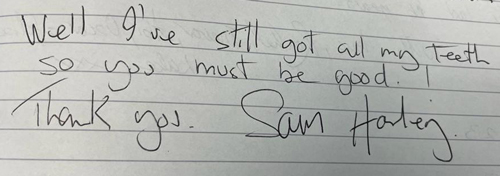 Well I've still got all my teeth
so you must be good. !
Thank you. Sam Harley.